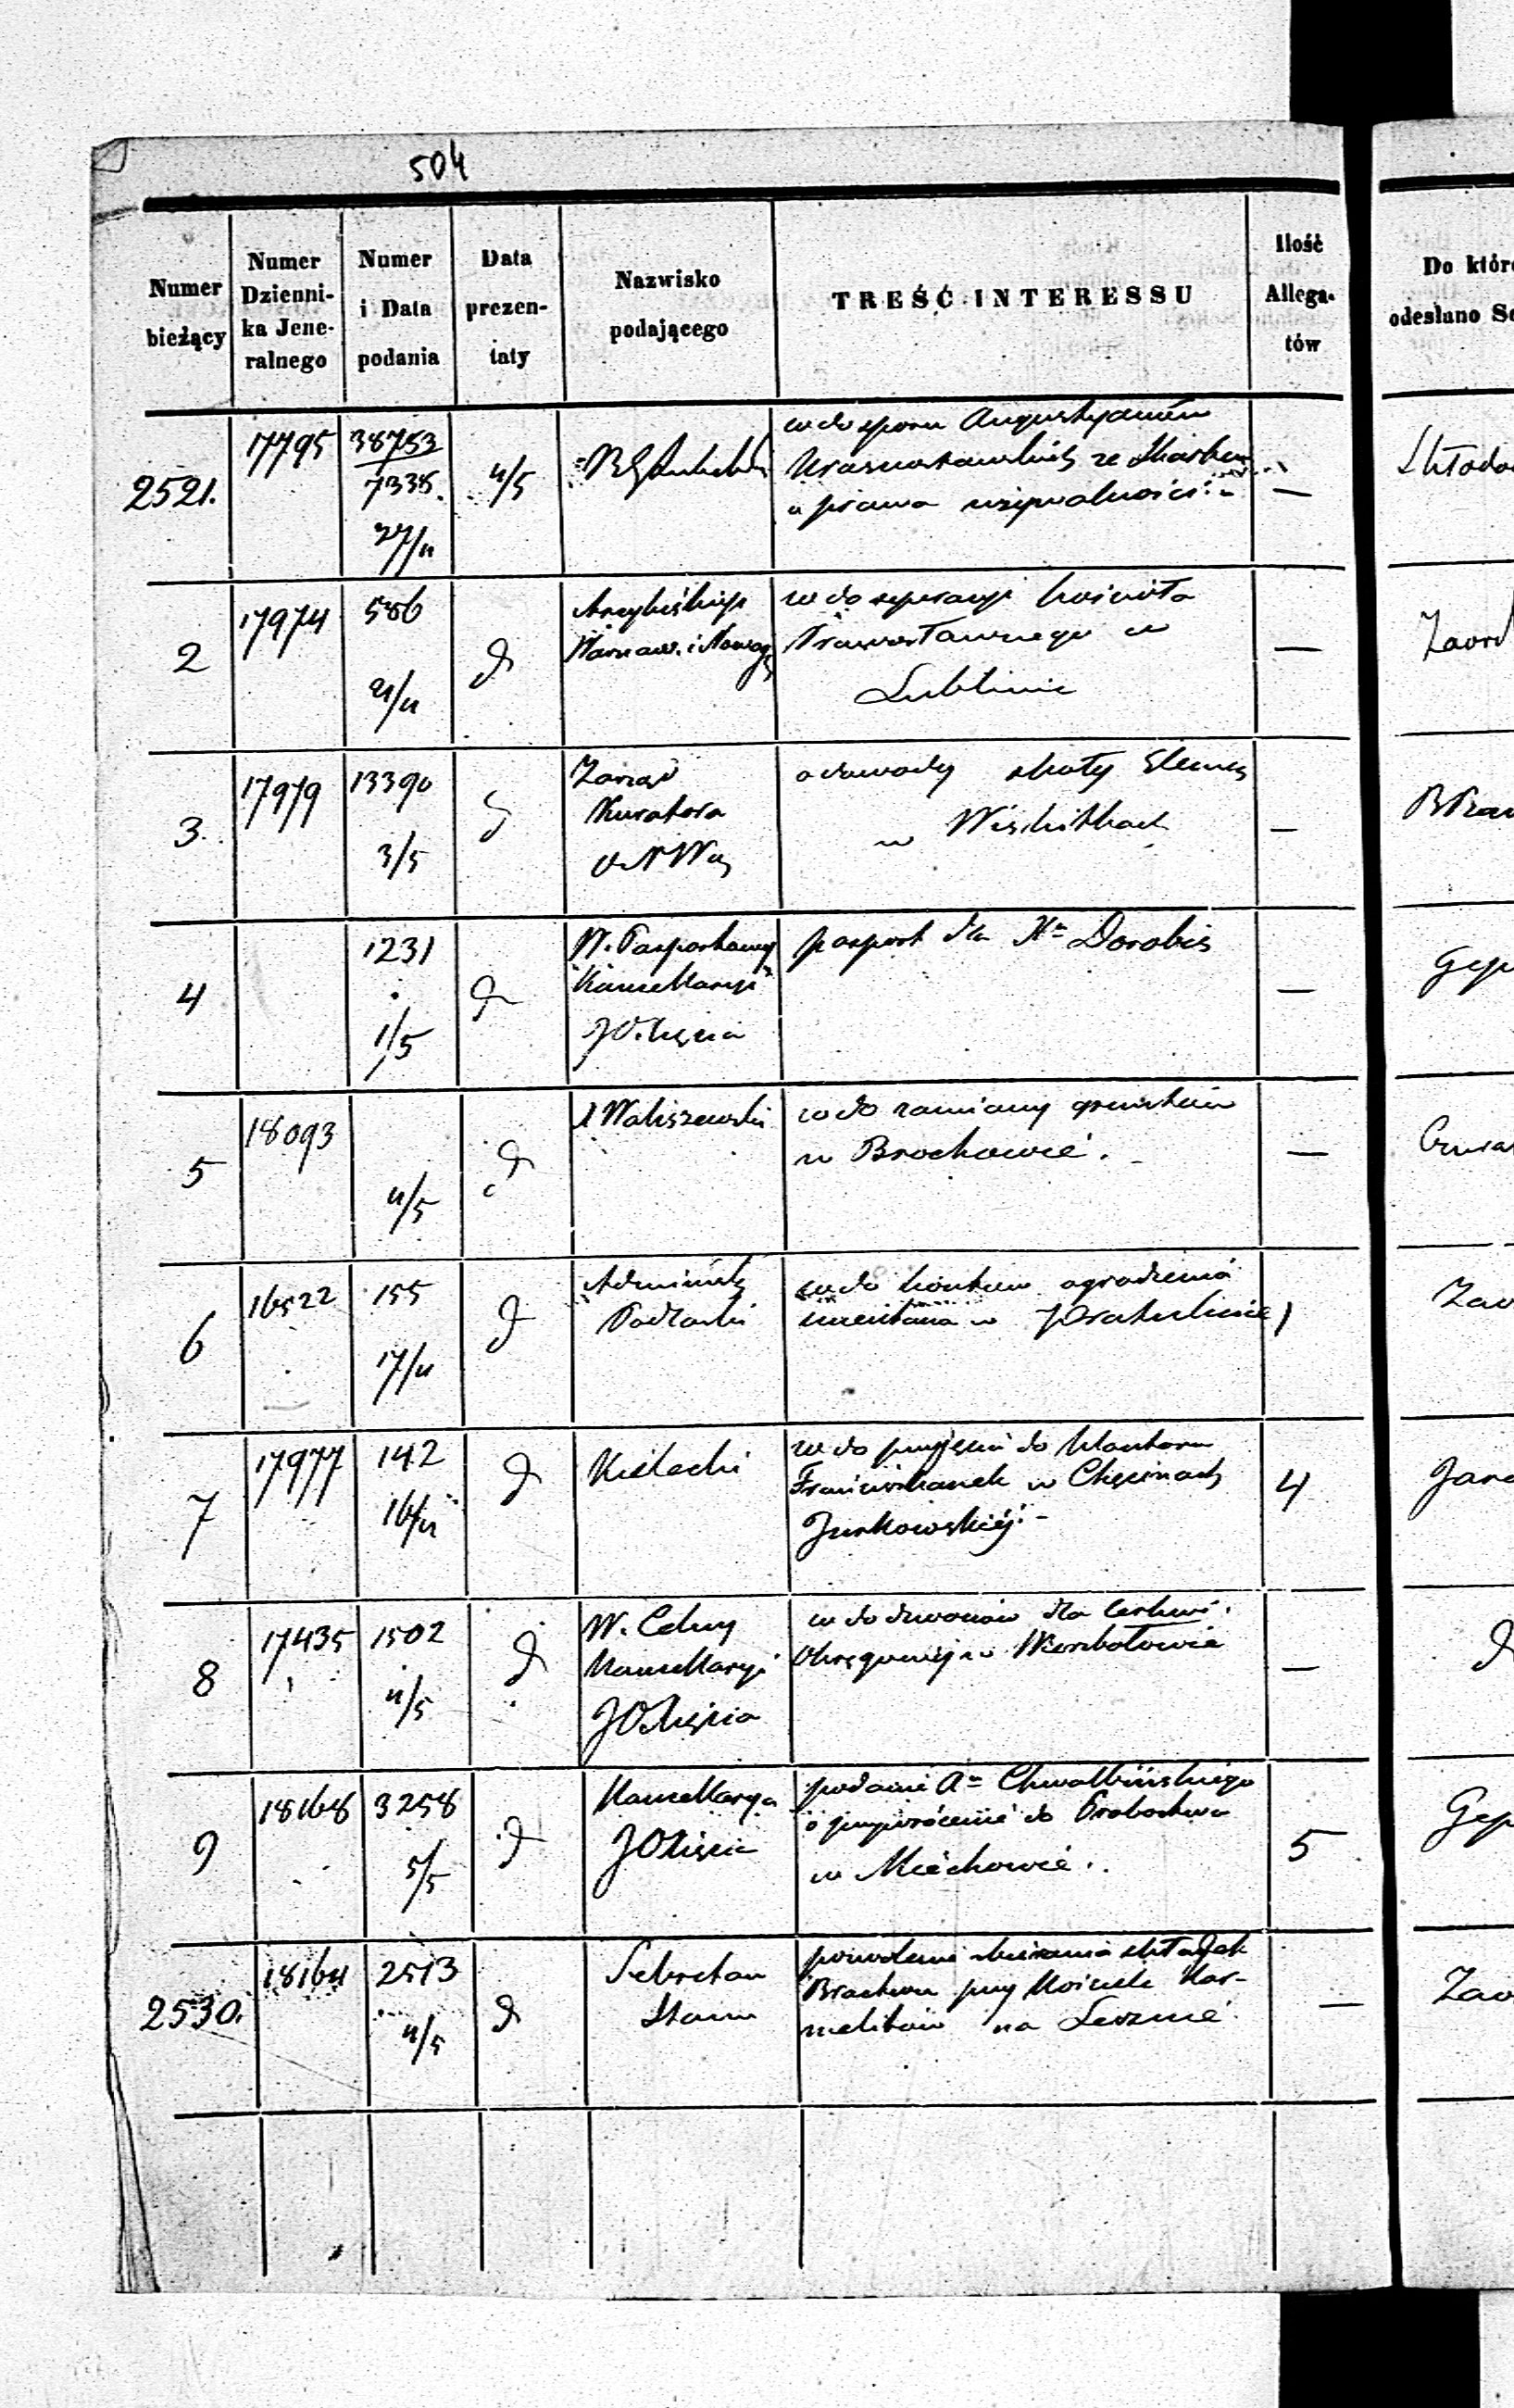 504
Numer bieżący
Numer Dzienni-ka Jene-ralnego
Numer i Data podania
Data prezen-taty
Nazwisko podającego
TREŚĆ INTERESSU
Ilość Allega-tów
Do któr
odesłano Se
2521. 17795 38753
7338.
27/4
4/5
w do sporu Augustyanów
Krasnostawskich ze Skarbem
o prawa używalności
—
2 17974 586
21/4
Arcybiskup
Warszaw. i Nowog
w do reperacyi kościoła
Prawosławnego w
Lublinie
—
3. 17979 13390
3/5
Zarząd
Kuratora
O N W
o dowody szkoły Elemen
w Wiskitkach
—
4 1231
1/5
W. Pasportowy
Kancellaryi
JO. Księcia
pasport dla Xa Dorobis
—
5 18093
4/5
X Waliszewski
w do zamiany gruntów
w Brochowie.
—
6 16522 155
17/4
Administ
Podlaski
w do kosztów ogrodzenia
cmentarza w Pratulinie
1
7 17977 142
16/4
Kielecki
w do przyjęcia do klasztoru
Franciszkanek w Chęcinach
Jurkowskiéj.
4
Jaro
8 17435 1502
4/5
W. Celny
Kancellaryi
JO Księcia
w do dzwonów dla Cerkwi
Okręgowéj w Wierzbołowie
—
9 18168 3258
5/5
Kancellarya
JO Księcia
podanie Xa Chwalbińskiego
o przywrócenie do Probostwa
w Miechowie.
5
Gep
2530. 18164 2513
4/5
Sekretarz
Stanu
pozwolenie zbierania składek
Bractwu przy Kościele Kar-
melitów na Lesznie
—
Zaw